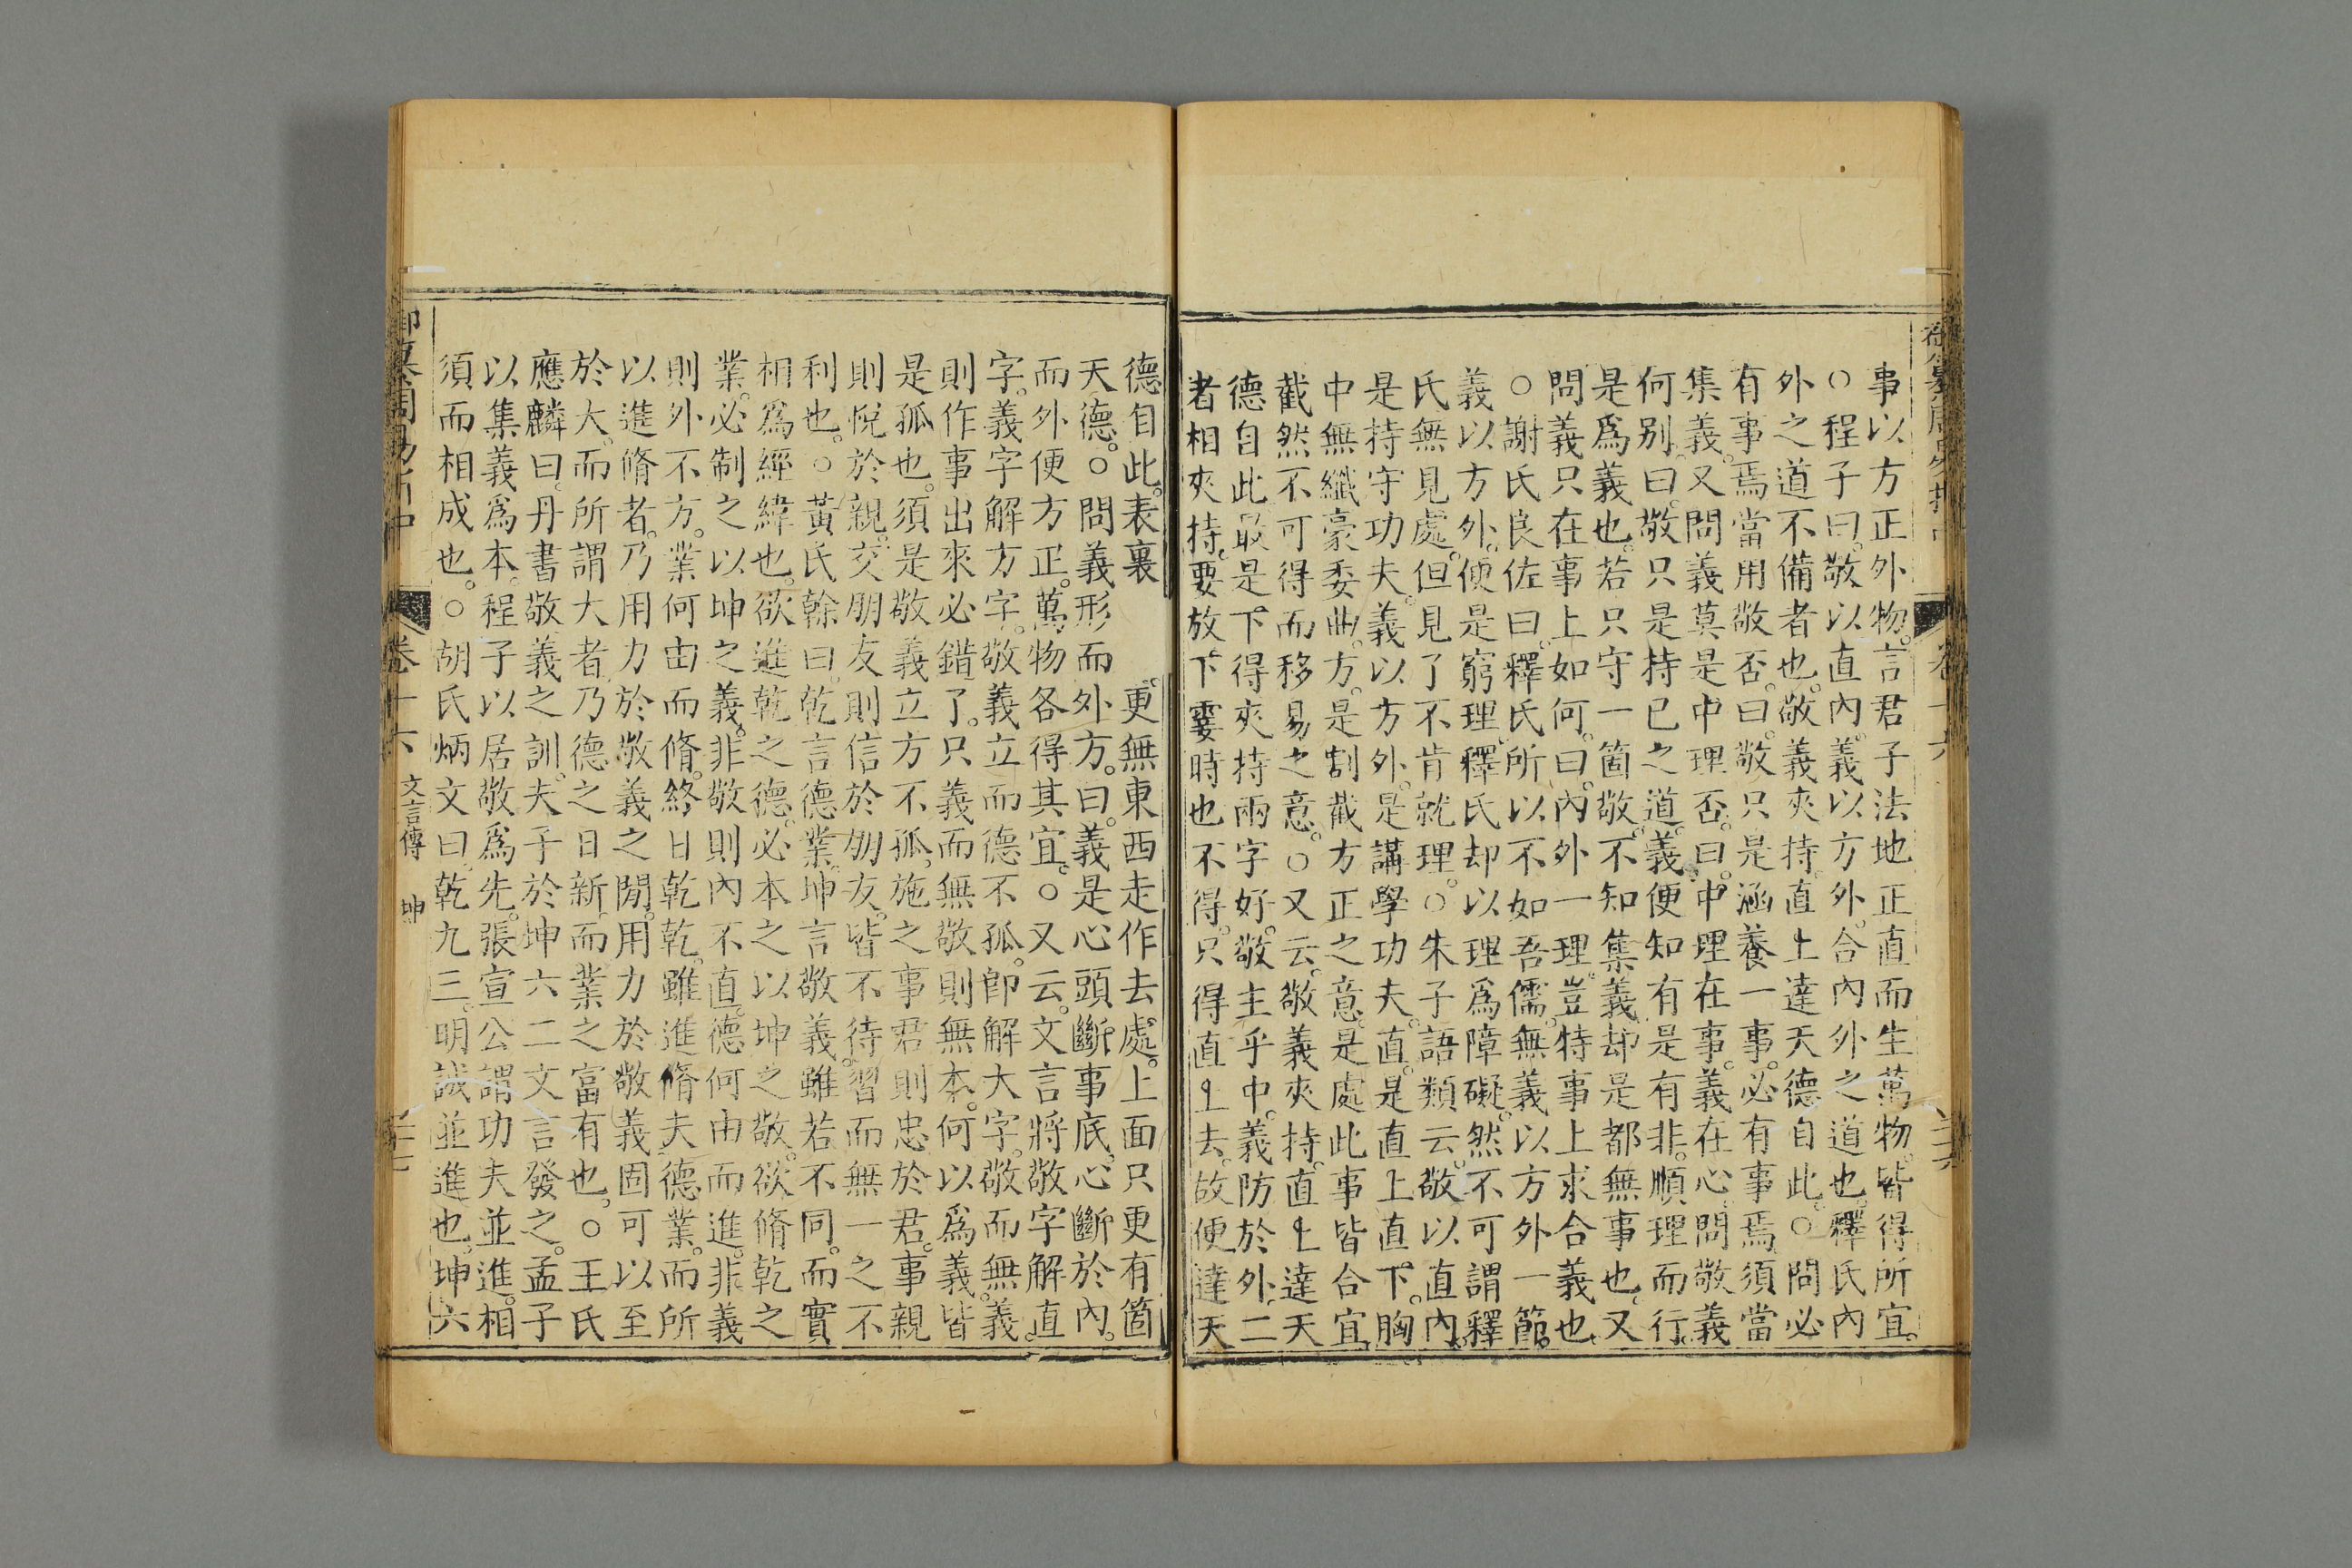 事以方正外物。言君子法地正直而生萬物。皆得所宜。
○程子曰。敬以直內。義以方外。合內外之道也。釋氏內
外之道不備者也。敬義夾持。直上達天德自此。○問必
有事焉當用敬否。曰。敬只是涵養一事。必有事焉須當
集義。又問義莫是中理否。曰。中理在事。義在心。問敬義
何別。曰。敬只是持己之道。義便知有是有非。順理而行。
是爲義也。若只守一箇敬。不知集義。却是都無事也。又
問義只在事上如何。曰。內外一理。豈特事上求合義也。
○謝氏良佐曰。釋氏所以不如吾儒。無義以方外一節。
義以方外。便是窮理。釋氏却以理爲障礙。然不可謂釋
氏無見處。但見了不肯就理。○朱子語類云。敬以直內。
是持守功夫。義以方外。是講學功夫。直。是直上直下。胸
中無纖豪委曲。方。是割截方正之意。是處此事皆合宜。
截然不可得而移易之意。○又云。敬義夾持。直上達天
德自此。最是下得夾持兩字好。敬主乎中。義防於外。二
者相夾持。要放下霎時也不得。只得直上去。故便達天
德自此。表裏　更無東西走作去處。上面只更有箇
天德。○問義形而外方。曰。義是心頭斷事底。心斷於內。
而外便方正。萬物各得其宜。○又云。文言將敬字解直
字。義字解方字。敬義立而德不孤。卽解大字。敬而無義。
則作事出來必錯了。只義而無敬則無本。何以爲義。皆
是孤也。須是敬義立方不孤。施之事君則忠於君。事親
則悅於親。交朋友則信於朋友。皆不待習而無一之不
利也。○黃氏榦曰。乾言德業。坤言敬義。雖若不同。而實
相爲經緯也。欲進乾之德。必本之以坤之敬。欲脩乾之
業。必制之以坤之義。非敬則內不直。德何由而進。非義
則外不方。業何由而脩。終日乾乾。雖進脩夫德業。而所
以進脩者。乃用力於敬義之閒。用力於敬義。固可以至
於大。而所謂大者。乃德之日新。而業之富有也。○王氏
應麟曰。丹書敬義之訓。夫子於坤六二文言發之。孟子
以集義爲本。程子以居敬爲先。張宣公謂功夫並進。相
須而相成也。○胡氏炳文曰。乾九三。明誠並進也。坤六
御纂周易折中　卷十六　文言傳　坤